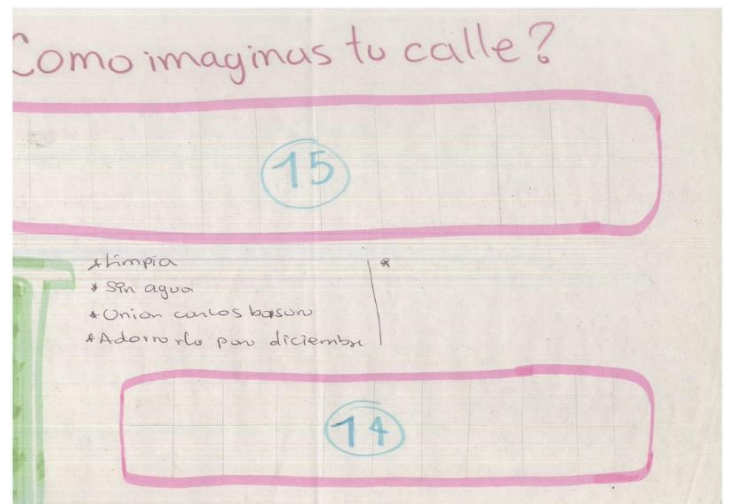 Como imaginas tu calle?
15
* Limpia
*
* Sin agua
* Union con los basura
* Adornarla para diciembre
14